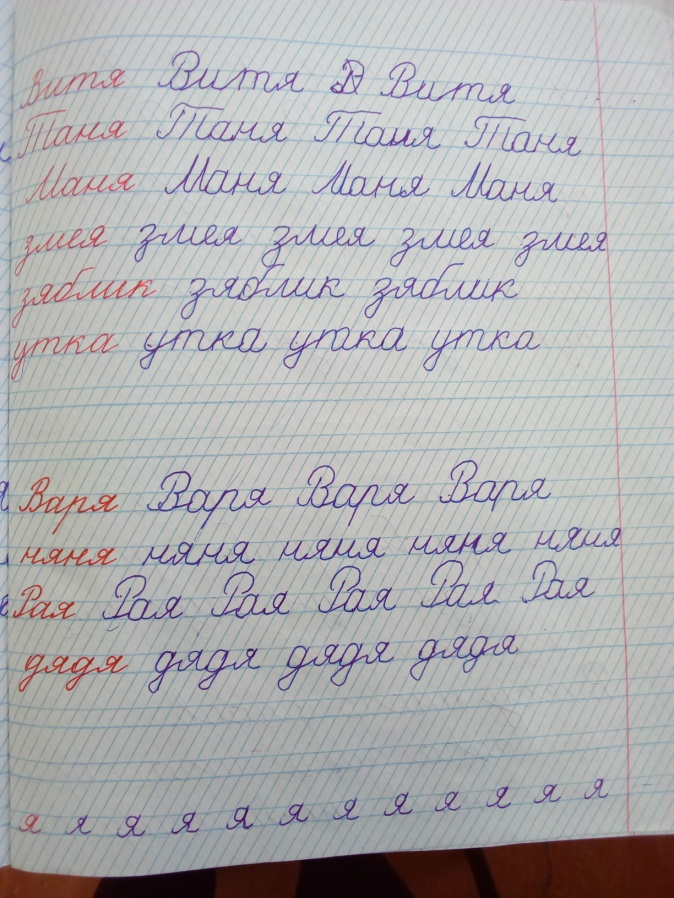 Витя Витя Витя
Таня Таня Таня Таня
Маня Маня Маня Маня
змея змея змея змея змея
зяблик зяблик зяблик
утка утка утка утка
Варя Варя Варя Варя
няня няня няня няня няня
Рая Рая Рая Рая Рая Рая
дядя дядя дядя дядя
я я я я я я я я я я я я